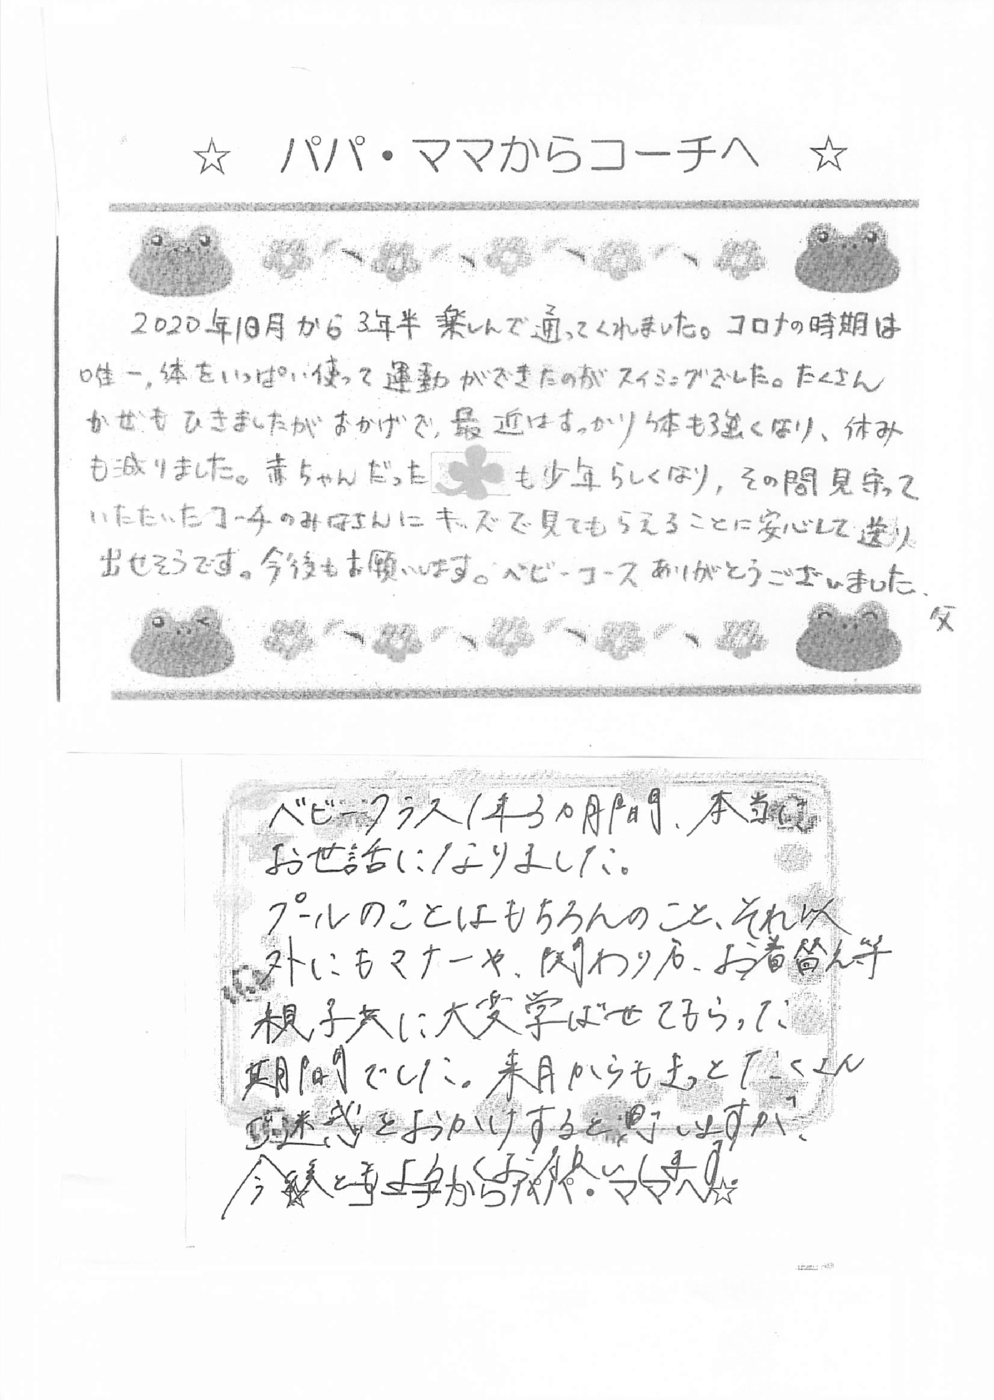 ☆ パパ・ママからコーチへ ☆
2020年10月から3年半楽しんで通ってくれました。コロナの時期は
唯一、体をいっぱい使って運動ができたのがスイミングでした。たくさん
かぜもひきましたがおかげで、最近はすっかり体も強くなり、休み
も減りました。赤ちゃんだった も少年らしくなり、その間見守って
いただいたコーチのみなさんにキッズで見てもらえることに安心して送り
出せそうです。今後もお願いします。ベビーコースありがとうございました。
父
ベビークラス1年3ヵ月間、本当に
お世話になりました。
プールのことはもちろんのこと、それ以
外にもマナーや、関わり方、お着替え等
親子共に大変学ばせてもらった
期間でした。来月からもきっとたくさん
ご迷惑をおかけすると思いますが、
今後ともよろしくお願いします
☆コーチからパパ・ママへ☆